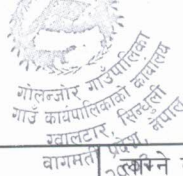 गोलन्जोर गाउँपालिका
गाउँ कार्यपालिकाको कार्यालय
ग्वालटार, सिन्धुली
वागमती प्रदेश, नेपाल